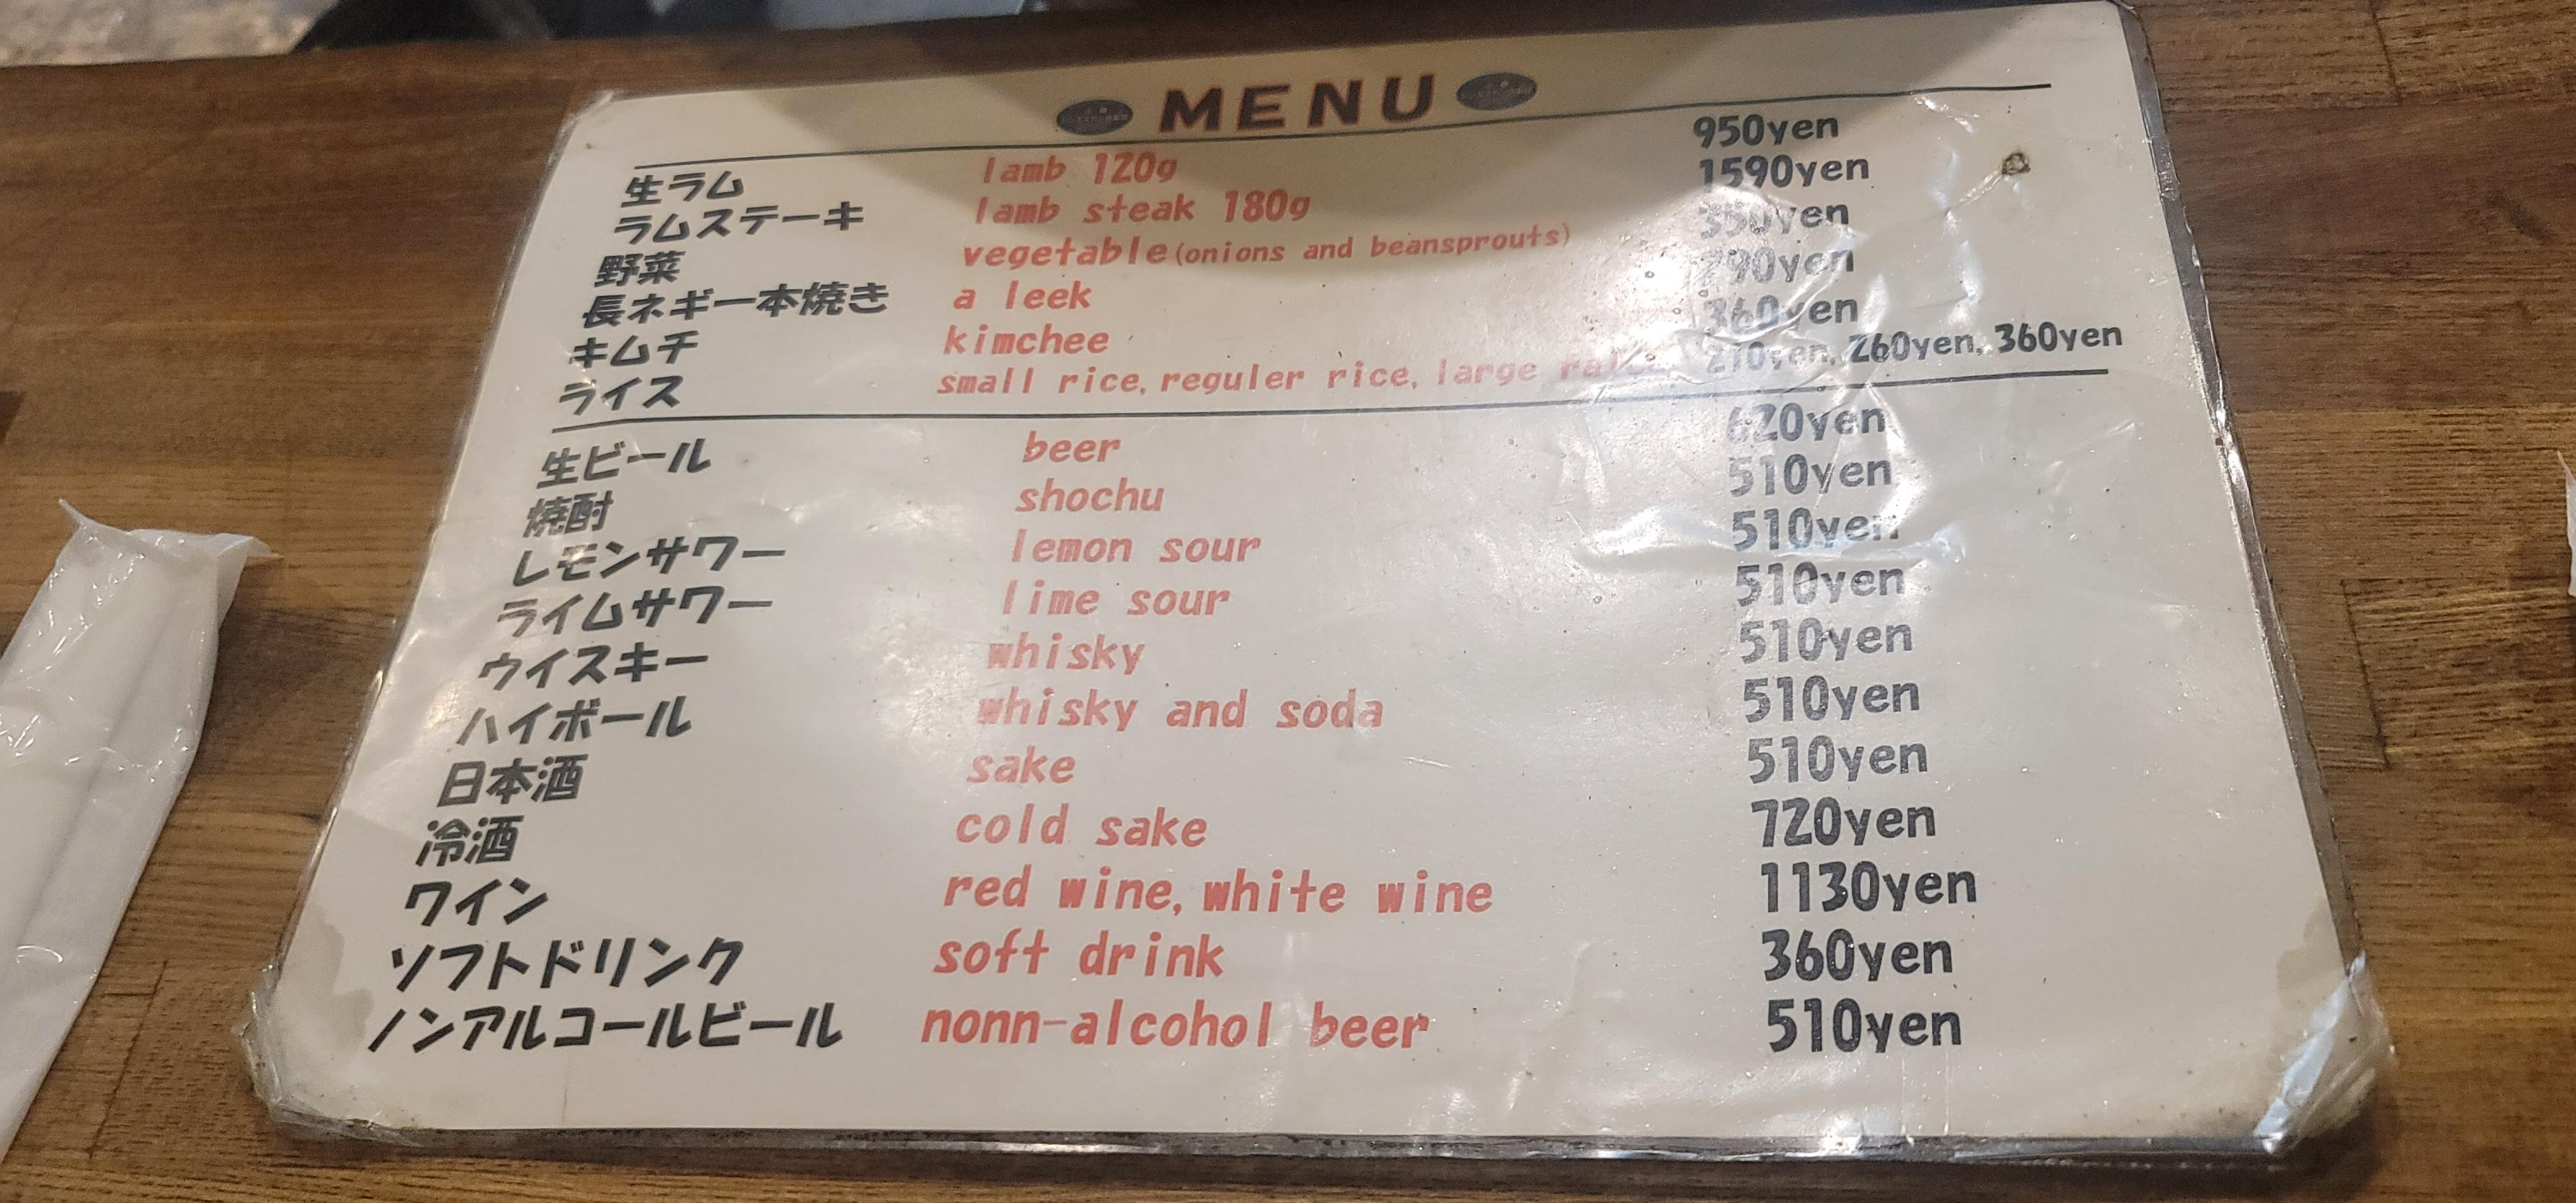 MENU
生ラム lamb 120g 950yen
ラムステーキ lamb steak 180g 1590yen
野菜 vegetable(onions and beansprouts) 350yen
長ネギ一本焼き a leek
キムチ kimchee 360yen
ライス small rice, reguler rice, large 210yen, 260yen, 360yen
生ビール beer 620yen
焼酎 shochu 510yen
レモンサワー lemon sour 510yen
ライムサワー lime sour 510yen
ウイスキー whisky 510yen
ハイボール whisky and soda 510yen
日本酒 sake 510yen
冷酒 cold sake 720yen
ワイン red wine, white wine 1130yen
ソフトドリンク soft drink 360yen
ノンアルコールビール nonn-alcohol beer 510yen